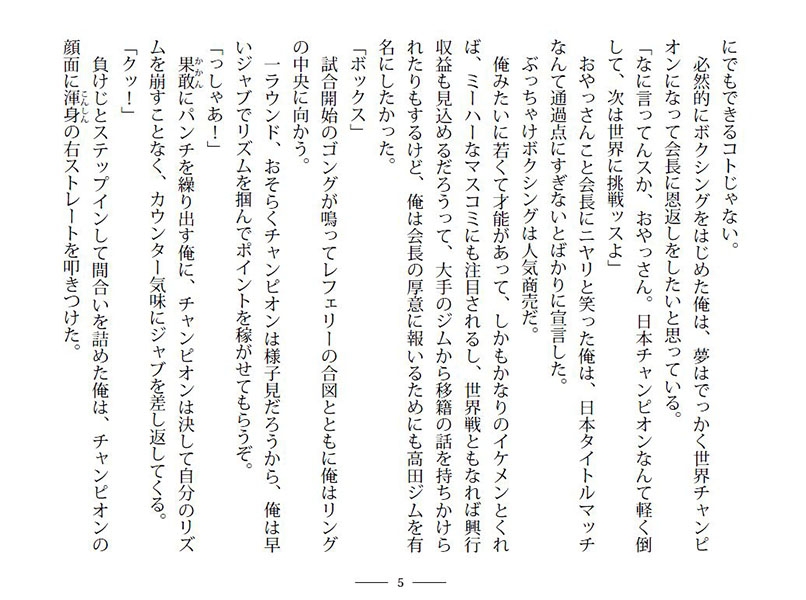 にでもできるコトじゃない。
必然的にボクシングをはじめた俺は、夢はでっかく世界チャンピ
オンになって会長に恩返しをしたいと思っている。
「なに言ってんスか、おやっさん。日本チャンピオンなんて軽く倒
して、次は世界に挑戦ッスよ」
おやっさんこと会長にニヤリと笑った俺は、日本タイトルマッチ
なんて通過点にすぎないとばかりに宣言した。
ぶっちゃけボクシングは人気商売だ。
俺みたいに若くて才能があって、しかもかなりのイケメンとくれ
ば、ミーハーなマスコミにも注目されるし、世界戦ともなれば興行
収益も見込めるだろうって、大手のジムから移籍の話を持ちかけら
れたりもするけど、俺は会長の厚意に報いるためにも高田ジムを有
名にしたかった。
「ボックス」
試合開始のゴングが鳴ってレフェリーの合図とともに俺はリング
の中央に向かう。
一ラウンド、おそらくチャンピオンは様子見だろうから、俺は早
いジャブでリズムを掴んでポイントを稼がせてもらうぞ。
「っしゃあ！」
果敢にパンチを繰り出す俺に、チャンピオンは決して自分のリズ
かかん
ムを崩すことなく、カウンター気味にジャブを差し返してくる。
「クッ！」
負けじとステップインして間合いを詰めた俺は、チャンピオンの
顔面に渾身の右ストレートを叩きつけた。
こんしん
5